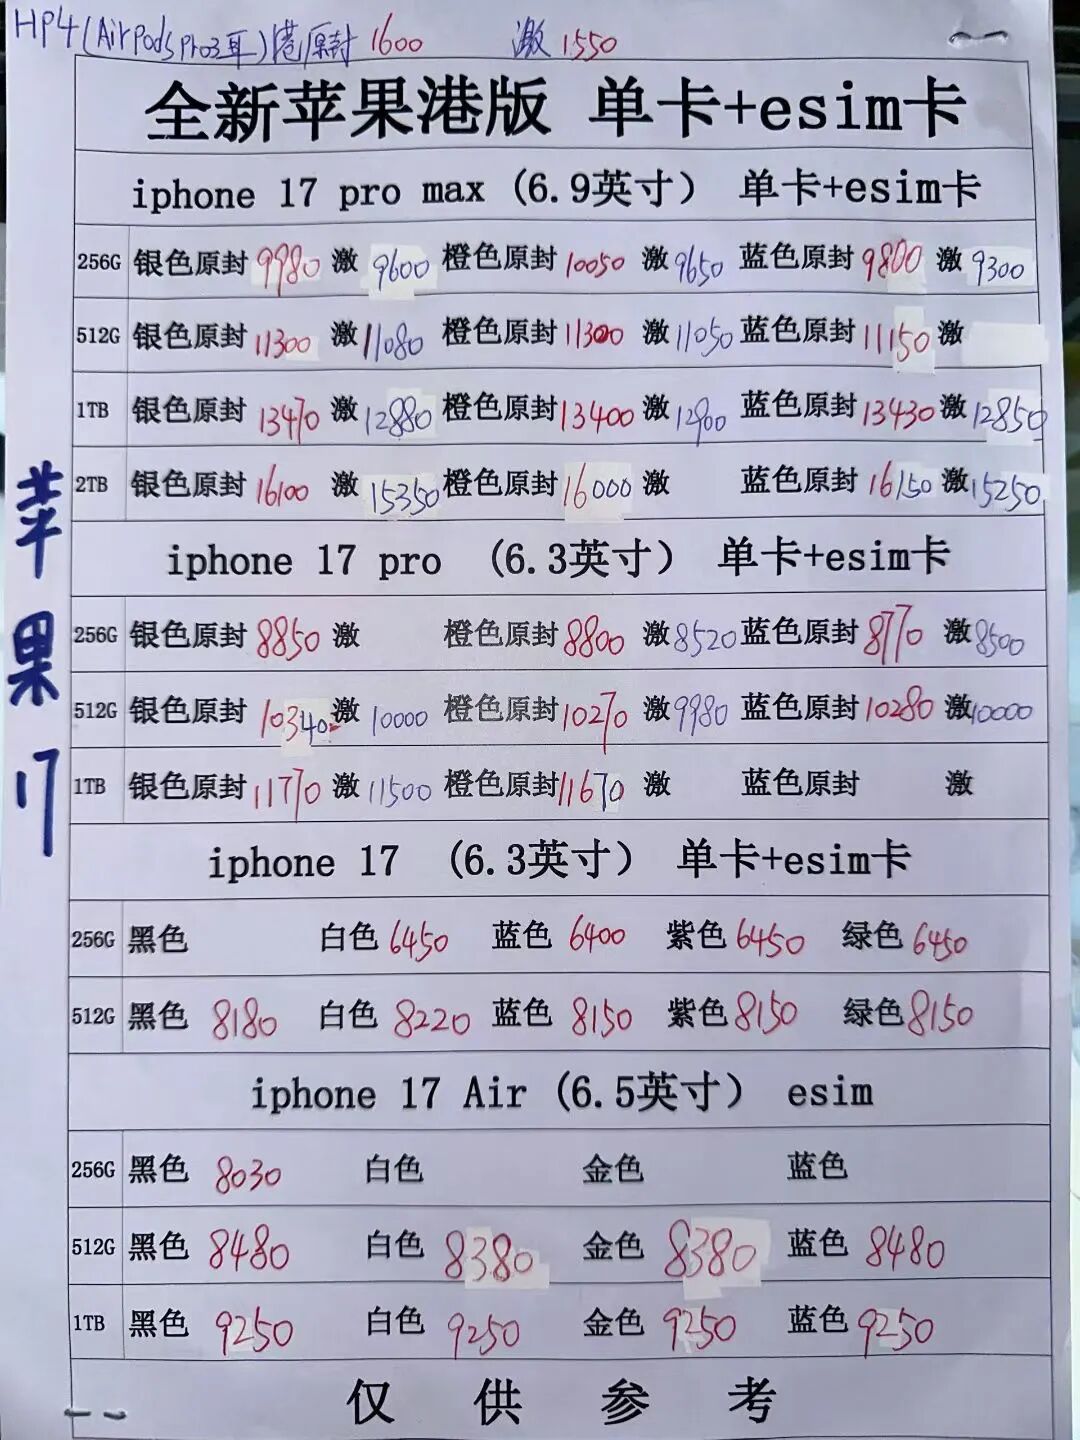 HP4(AirPods pro3耳)港原封 1600 激 1550
全新苹果港版 单卡+esim卡
iphone 17 pro max (6.9英寸) 单卡+esim卡
256G 银色原封 9980 激 9600 橙色原封 10050 激 9650 蓝色原封 9800 激 9300
512G 银色原封 11300 激 11080 橙色原封 11300 激 11050 蓝色原封 11150 激
1TB 银色原封 13470 激 12880 橙色原封 13400 激 12900 蓝色原封 13430 激 12850
2TB 银色原封 16100 激 15350 橙色原封 16000 激 蓝色原封 16150 激 15250
iphone 17 pro (6.3英寸) 单卡+esim卡
256G 银色原封 8850 激 橙色原封 8800 激 8520 蓝色原封 8770 激 8500
512G 银色原封 10340 激 10000 橙色原封 10270 激 9980 蓝色原封 10280 激 10000
1TB 银色原封 11770 激 11500 橙色原封 11670 激 蓝色原封 激
iphone 17 (6.3英寸) 单卡+esim卡
256G 黑色 白色 6450 蓝色 6400 紫色 6450 绿色 6450
512G 黑色 8180 白色 8220 蓝色 8150 紫色 8150 绿色 8150
iphone 17 Air (6.5英寸) esim
256G 黑色 8030 白色 金色 蓝色
512G 黑色 8480 白色 8380 金色 8380 蓝色 8480
1TB 黑色 9250 白色 9250 金色 9250 蓝色 9250
仅供参考
苹果17